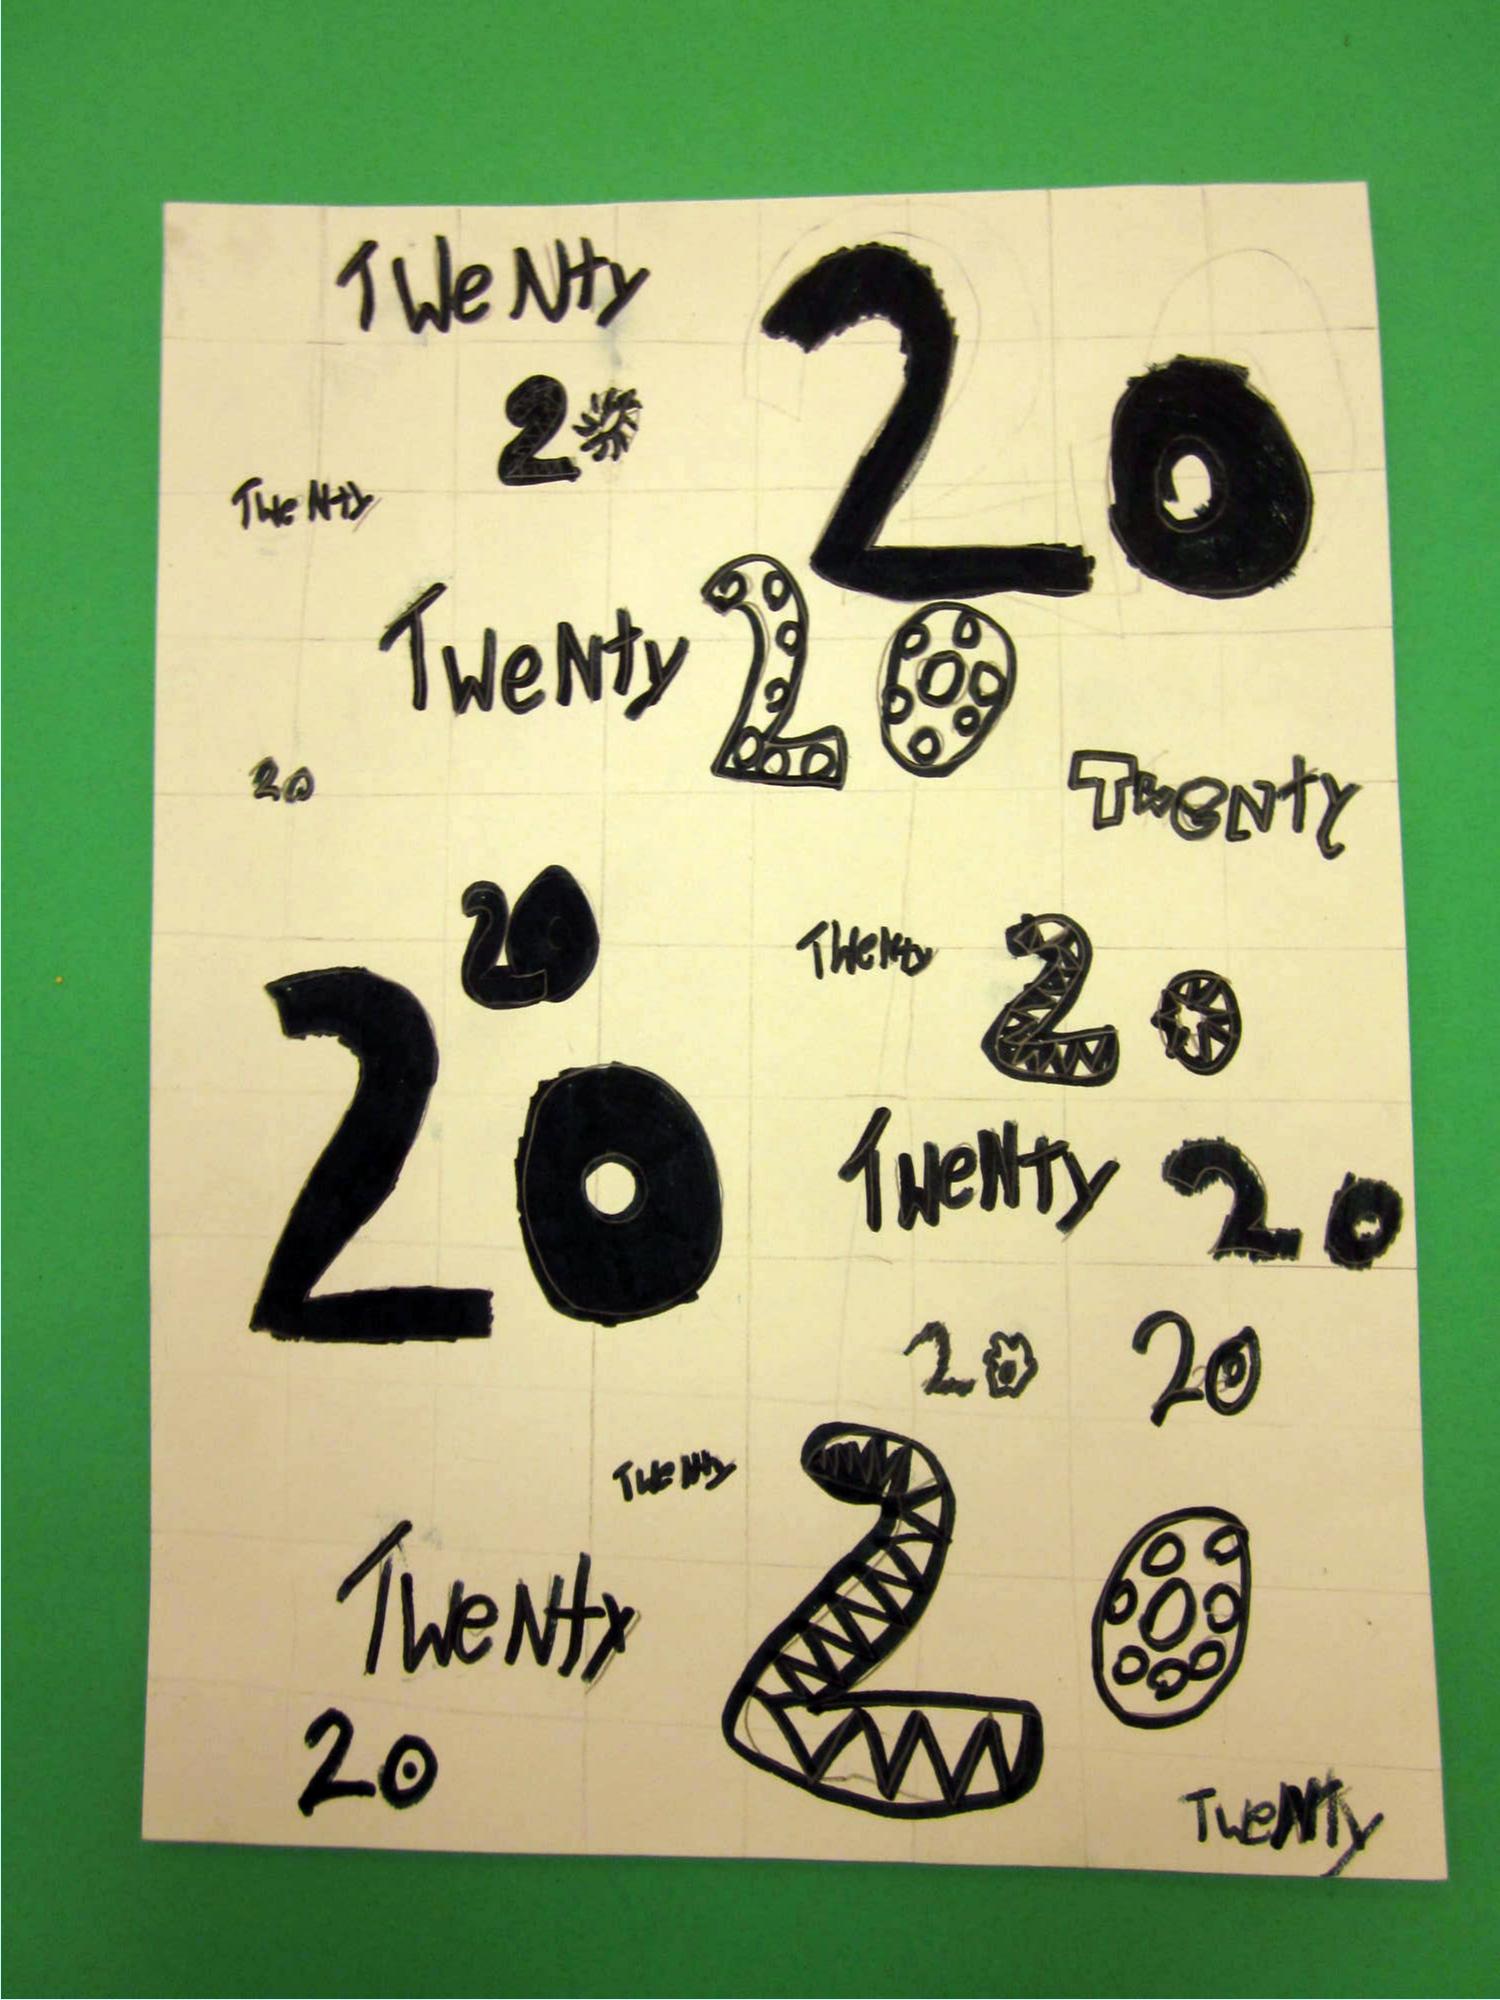 TWeNty
20
20
TWeNty
TWeNty
20
20
TWeNty
20
TWeNty
20
20
TWeNTy
20
20
20
TWeNty
20
TWeNty
20
TWeNTy